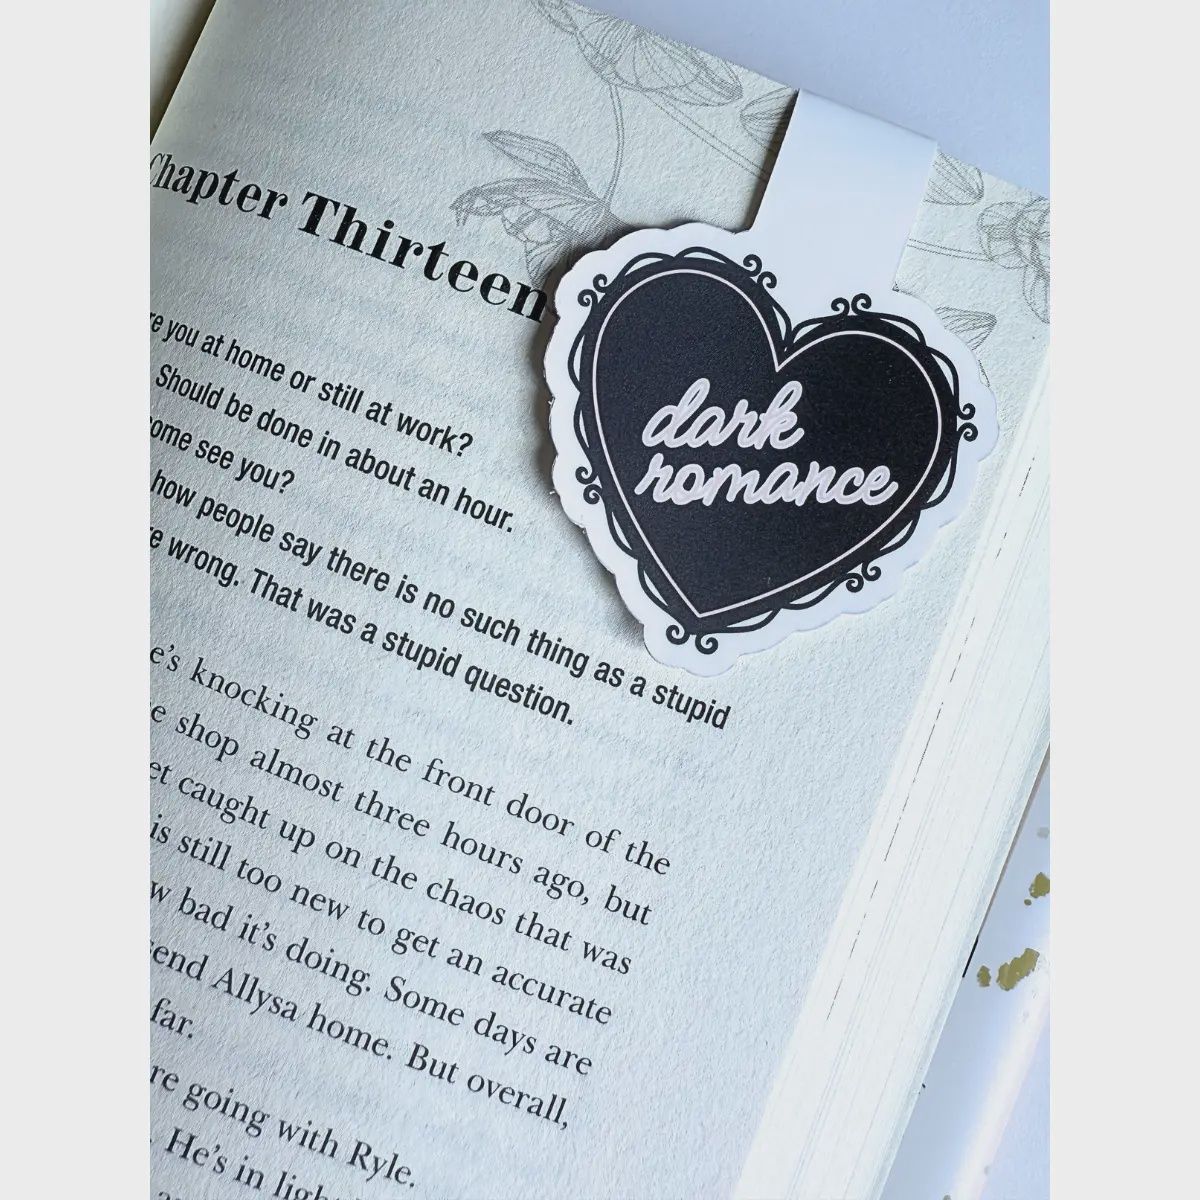 Chapter Thirteen
you at home or still at work?
Should be done in about an hour.
see you?
how people say there is no such thing as a stupid
wrong. That was a stupid question.
knocking at the front door of the
shop almost three hours ago, but
caught up on the chaos that was
is still too new to get an accurate
bad it's doing. Some days are
Allysa home. But overall,
far.
going with Ryle.
He's in
dark
romance